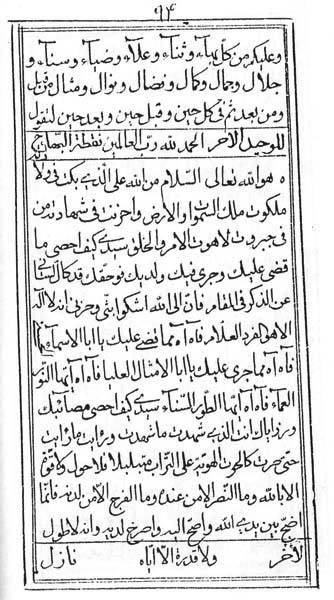 ٩٤
وعليكم من كل بهآء وثنآء وعلآء وضيآء وسنآء و
جلال وجمال وكمال وفضال ونوال ومثال من قبل
ومن بعد ثم في كل حين وقبل حين وبعد حين لنقول
للوحيد الاخر الحمد لله رب العالمين
هو الله تعالى السلام من الله على الذي بكت في ولا
ملكوت ملك السموات والارض واحزنت في شهادته من
في جبروت لاهوت الامر والخلق سيدي كيف احصى ما
قضى عليك وجرى فيك ولديك فوحقك قد كل لساني
عن الذكر في المقام فان الى الله اشكوا بثي وحزني انه لا اله
الا هو الفرد العلام فآه آه مما قضى عليك يا ابا الاسمآء
فآه آه مما جرى عليك يا ابا الامثال العليا فآه آه ايها النور
العمآء فآه آه ايها الطور السنآء سيدي كيف احصى مصائبك
ورزاياك انت الذي شهدت ما شهدت ورايت ما رايت
حتى صرت كالحوت على التراب متبلبلا فلا حول ولا قوة
الا بالله وما النصر الا من عنده وما الفرج الا من لديه فانما
اضج بين يدي الله واضج اليه واصرخ لديه وانه لا طول
لاخر ولا قدرة الا اياه نازل